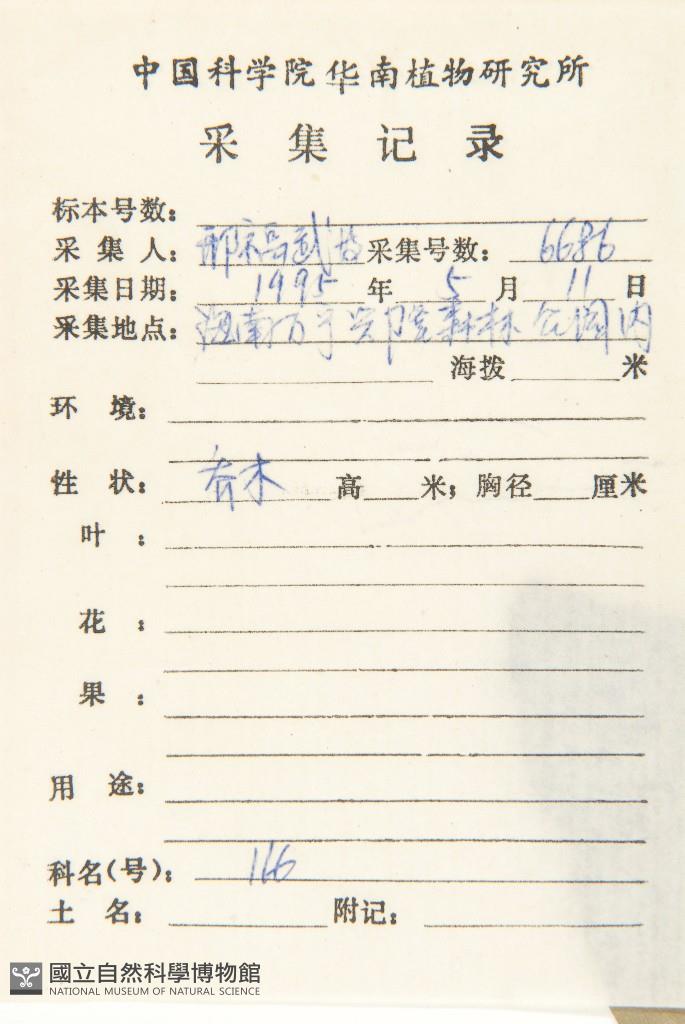 中国科学院华南植物研究所
采集记录
标本号数:
采集人: 邢福武 采集号数: 6686
采集日期: 1995 年 5 月 11 日
采集地点: 海南万宁兴隆森林公园内
海拨 米
环境:
性状: 乔木 高 米; 胸径 厘米
叶:
花:
果:
用途:
科名(号): 166
土名: 附记:
國立自然科學博物館
NATIONAL MUSEUM OF NATURAL SCIENCE